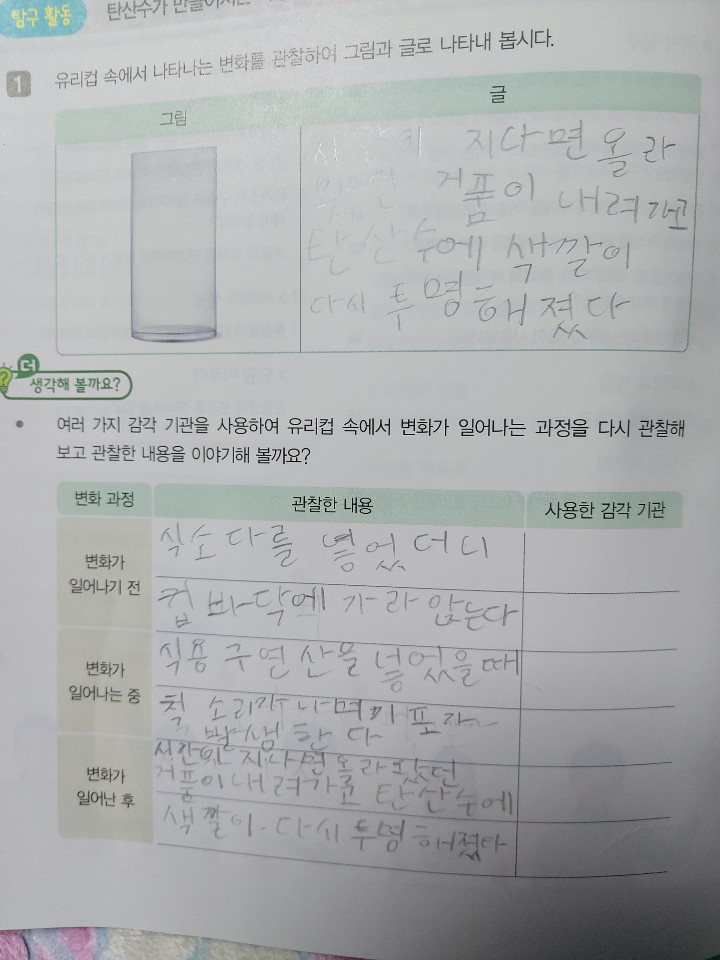 탐구 활동
탄산수가 만들어지는
1 유리컵 속에서 나타나는 변화를 관찰하여 그림과 글로 나타내 봅시다.
그림
글
시간이 지다면 올라
거품이 내려가고
탄산수에 색깔이
다시 투명해졌다
더 생각해 볼까요?
• 여러 가지 감각 기관을 사용하여 유리컵 속에서 변화가 일어나는 과정을 다시 관찰해
보고 관찰한 내용을 이야기해 볼까요?
변화 과정
관찰한 내용
사용한 감각 기관
변화가
일어나기 전
식소다를 넣었더니
컵 바닥에 가라 앉는다
변화가
일어나는 중
식용 구연산을 넣었을때
칙 소리가 나며
발생한다
변화가
일어난 후
시간이 지나면 올라갔던
거품이 내려가고 탄산수에
색깔이 다시 투명해졌다